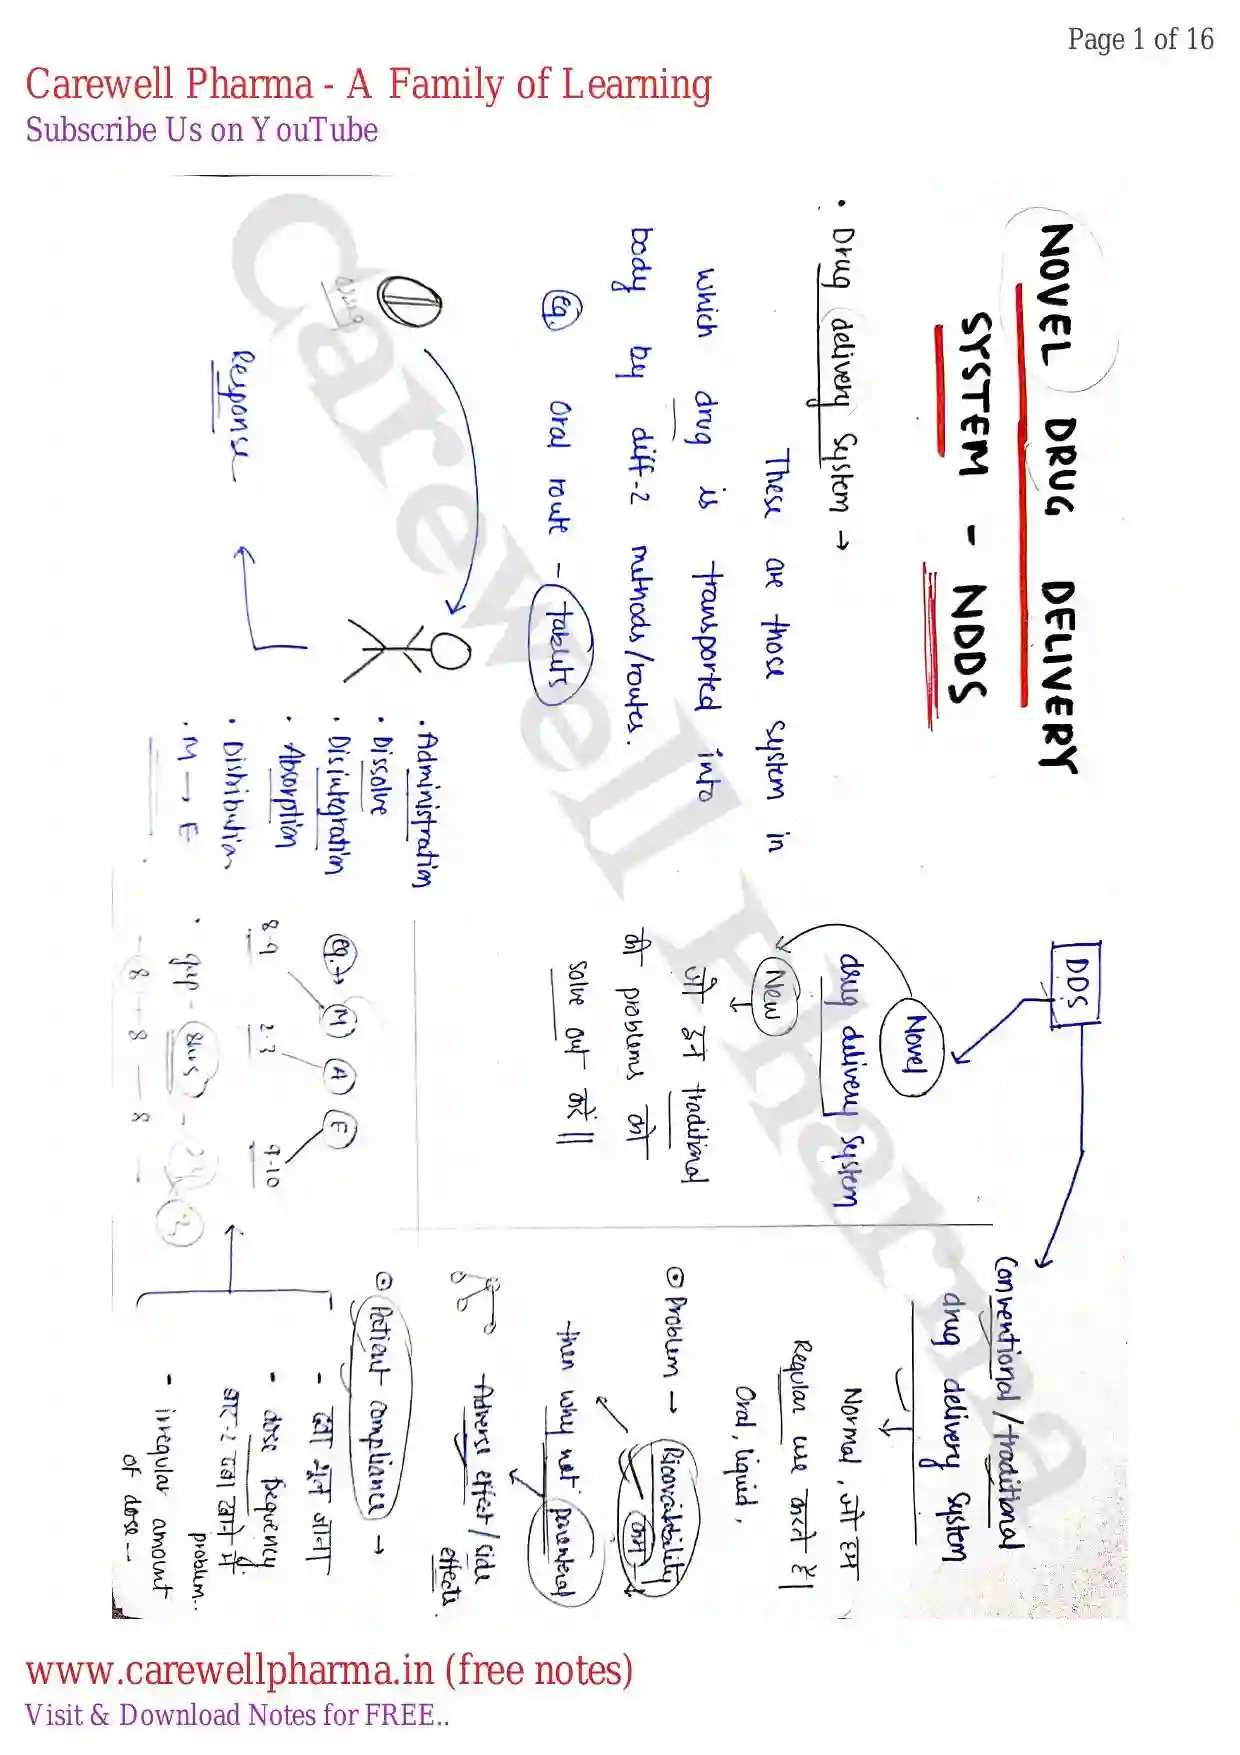 Page 1 of 16
Carewell Pharma - A Family of Learning
Subscribe Us on YouTube
NOVEL DRUG DELIVERY
SYSTEM - NDDS
• Drug delivery System →
These are those system in
which drug is transported into
body by diff-2 methods/routes.
eg. Oral route - tablets
drug
Response
• Administration
• Dissolve
• Disintegration
• Absorption
• Distribution
• M → E
DDS
Novel
drug delivery system
New
जो इन traditional
की problems को
solve out करें ||
eg. → M A E
8-9 2-3 9-10
• gap - 8hrs -
- 8 - 8 - 8 -
Conventional/traditional
drug delivery system
Normal, जो हम
Regular use करते हैं |
Oral, liquid,
⊙ Problem → Bioavailability
कम
then why not parenteral
- Adverse effect/side
effects.
⊙ Patient compliance →
- दवा भूल जाना
• dose frequency
बार-2 दवा खाने में
problem..
- irregular amount
of dose--
Carewell Pharma
www.carewellpharma.in (free notes)
Visit & Download Notes for FREE..